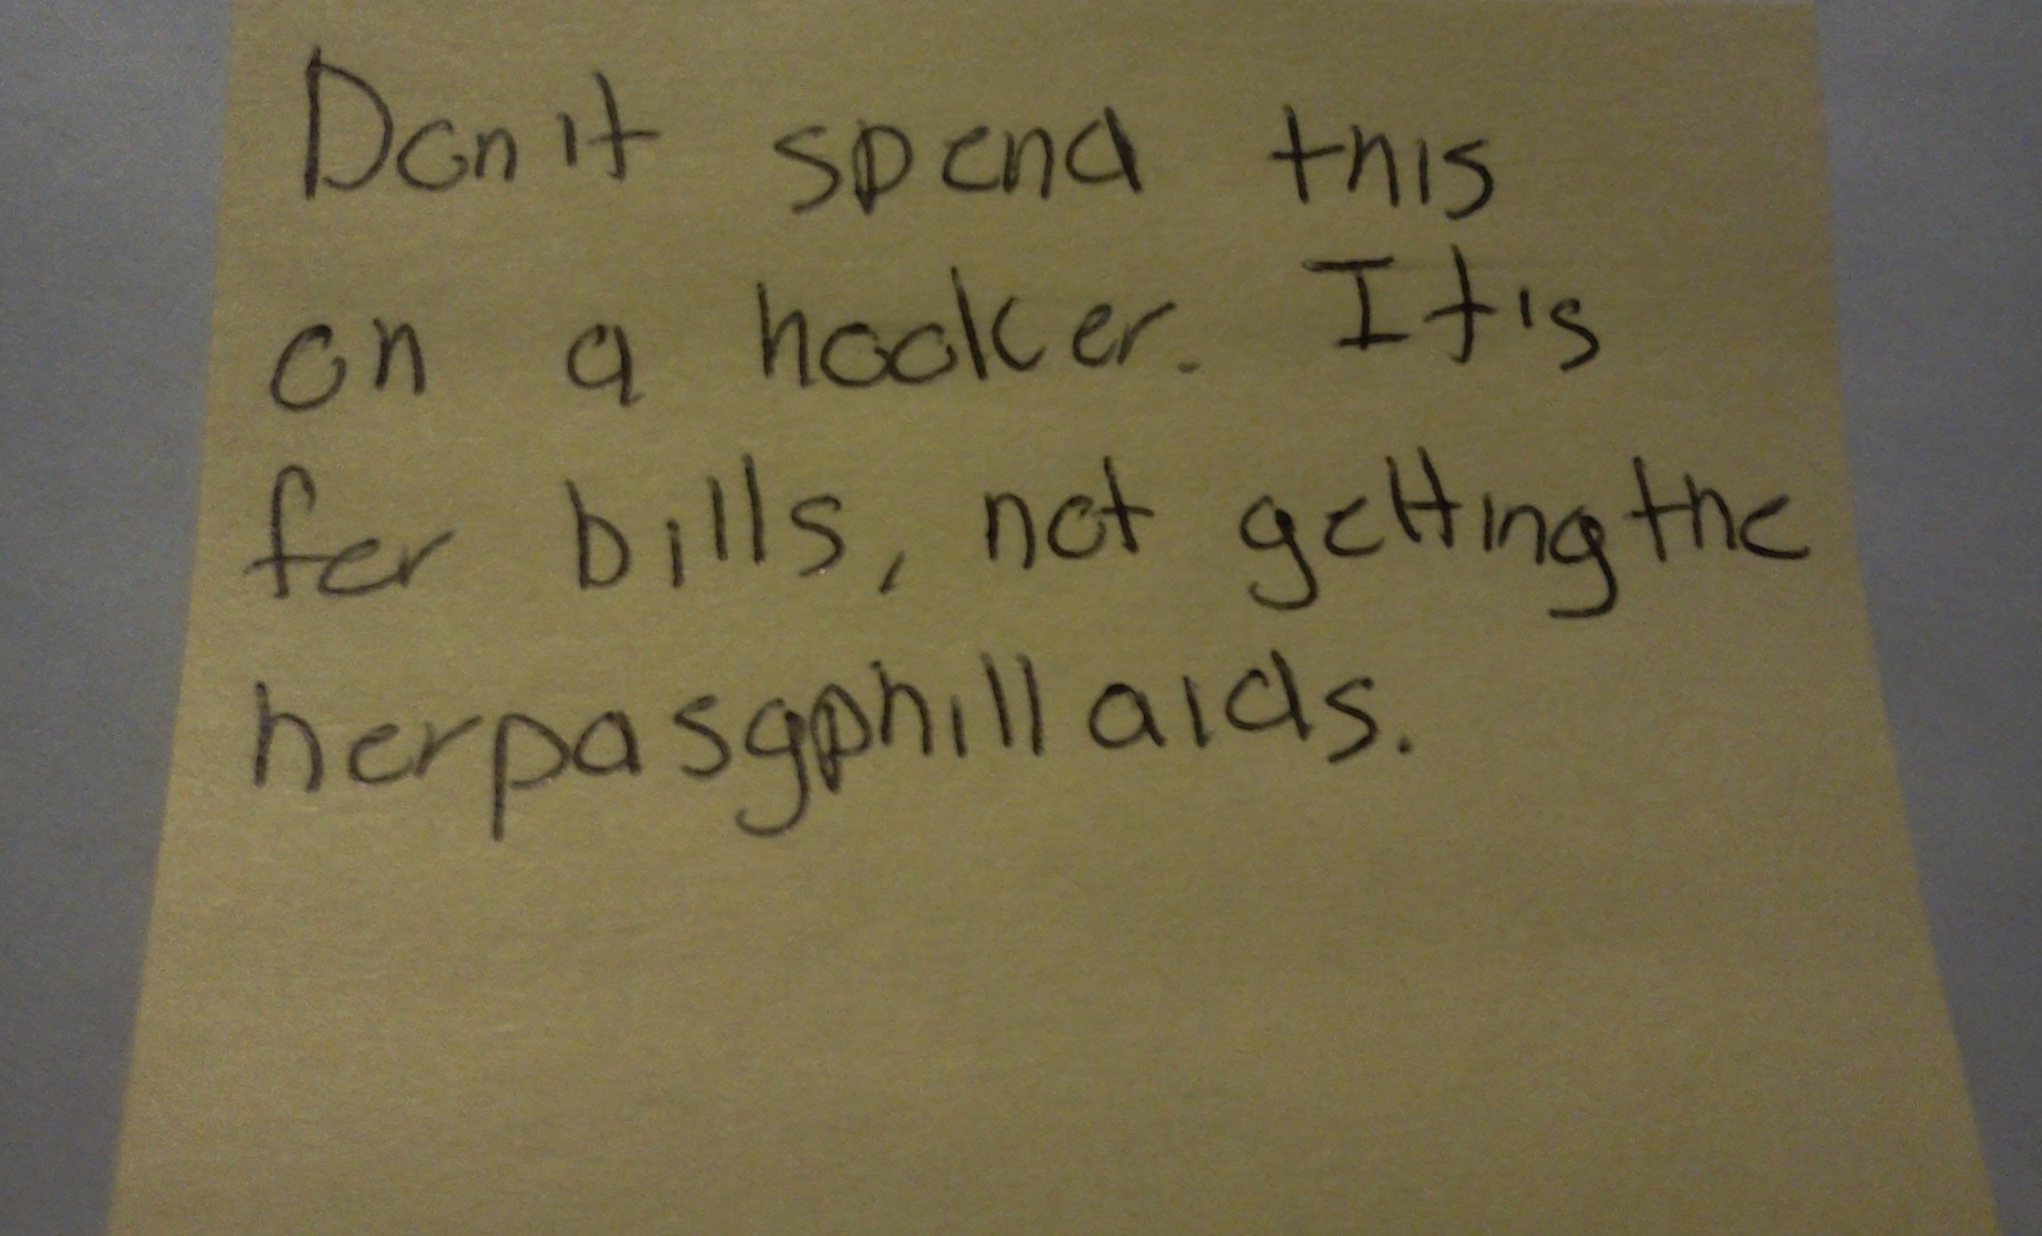 Don't spend this
on a hooker. It's
for bills, not getting the
herpasgphillaids.